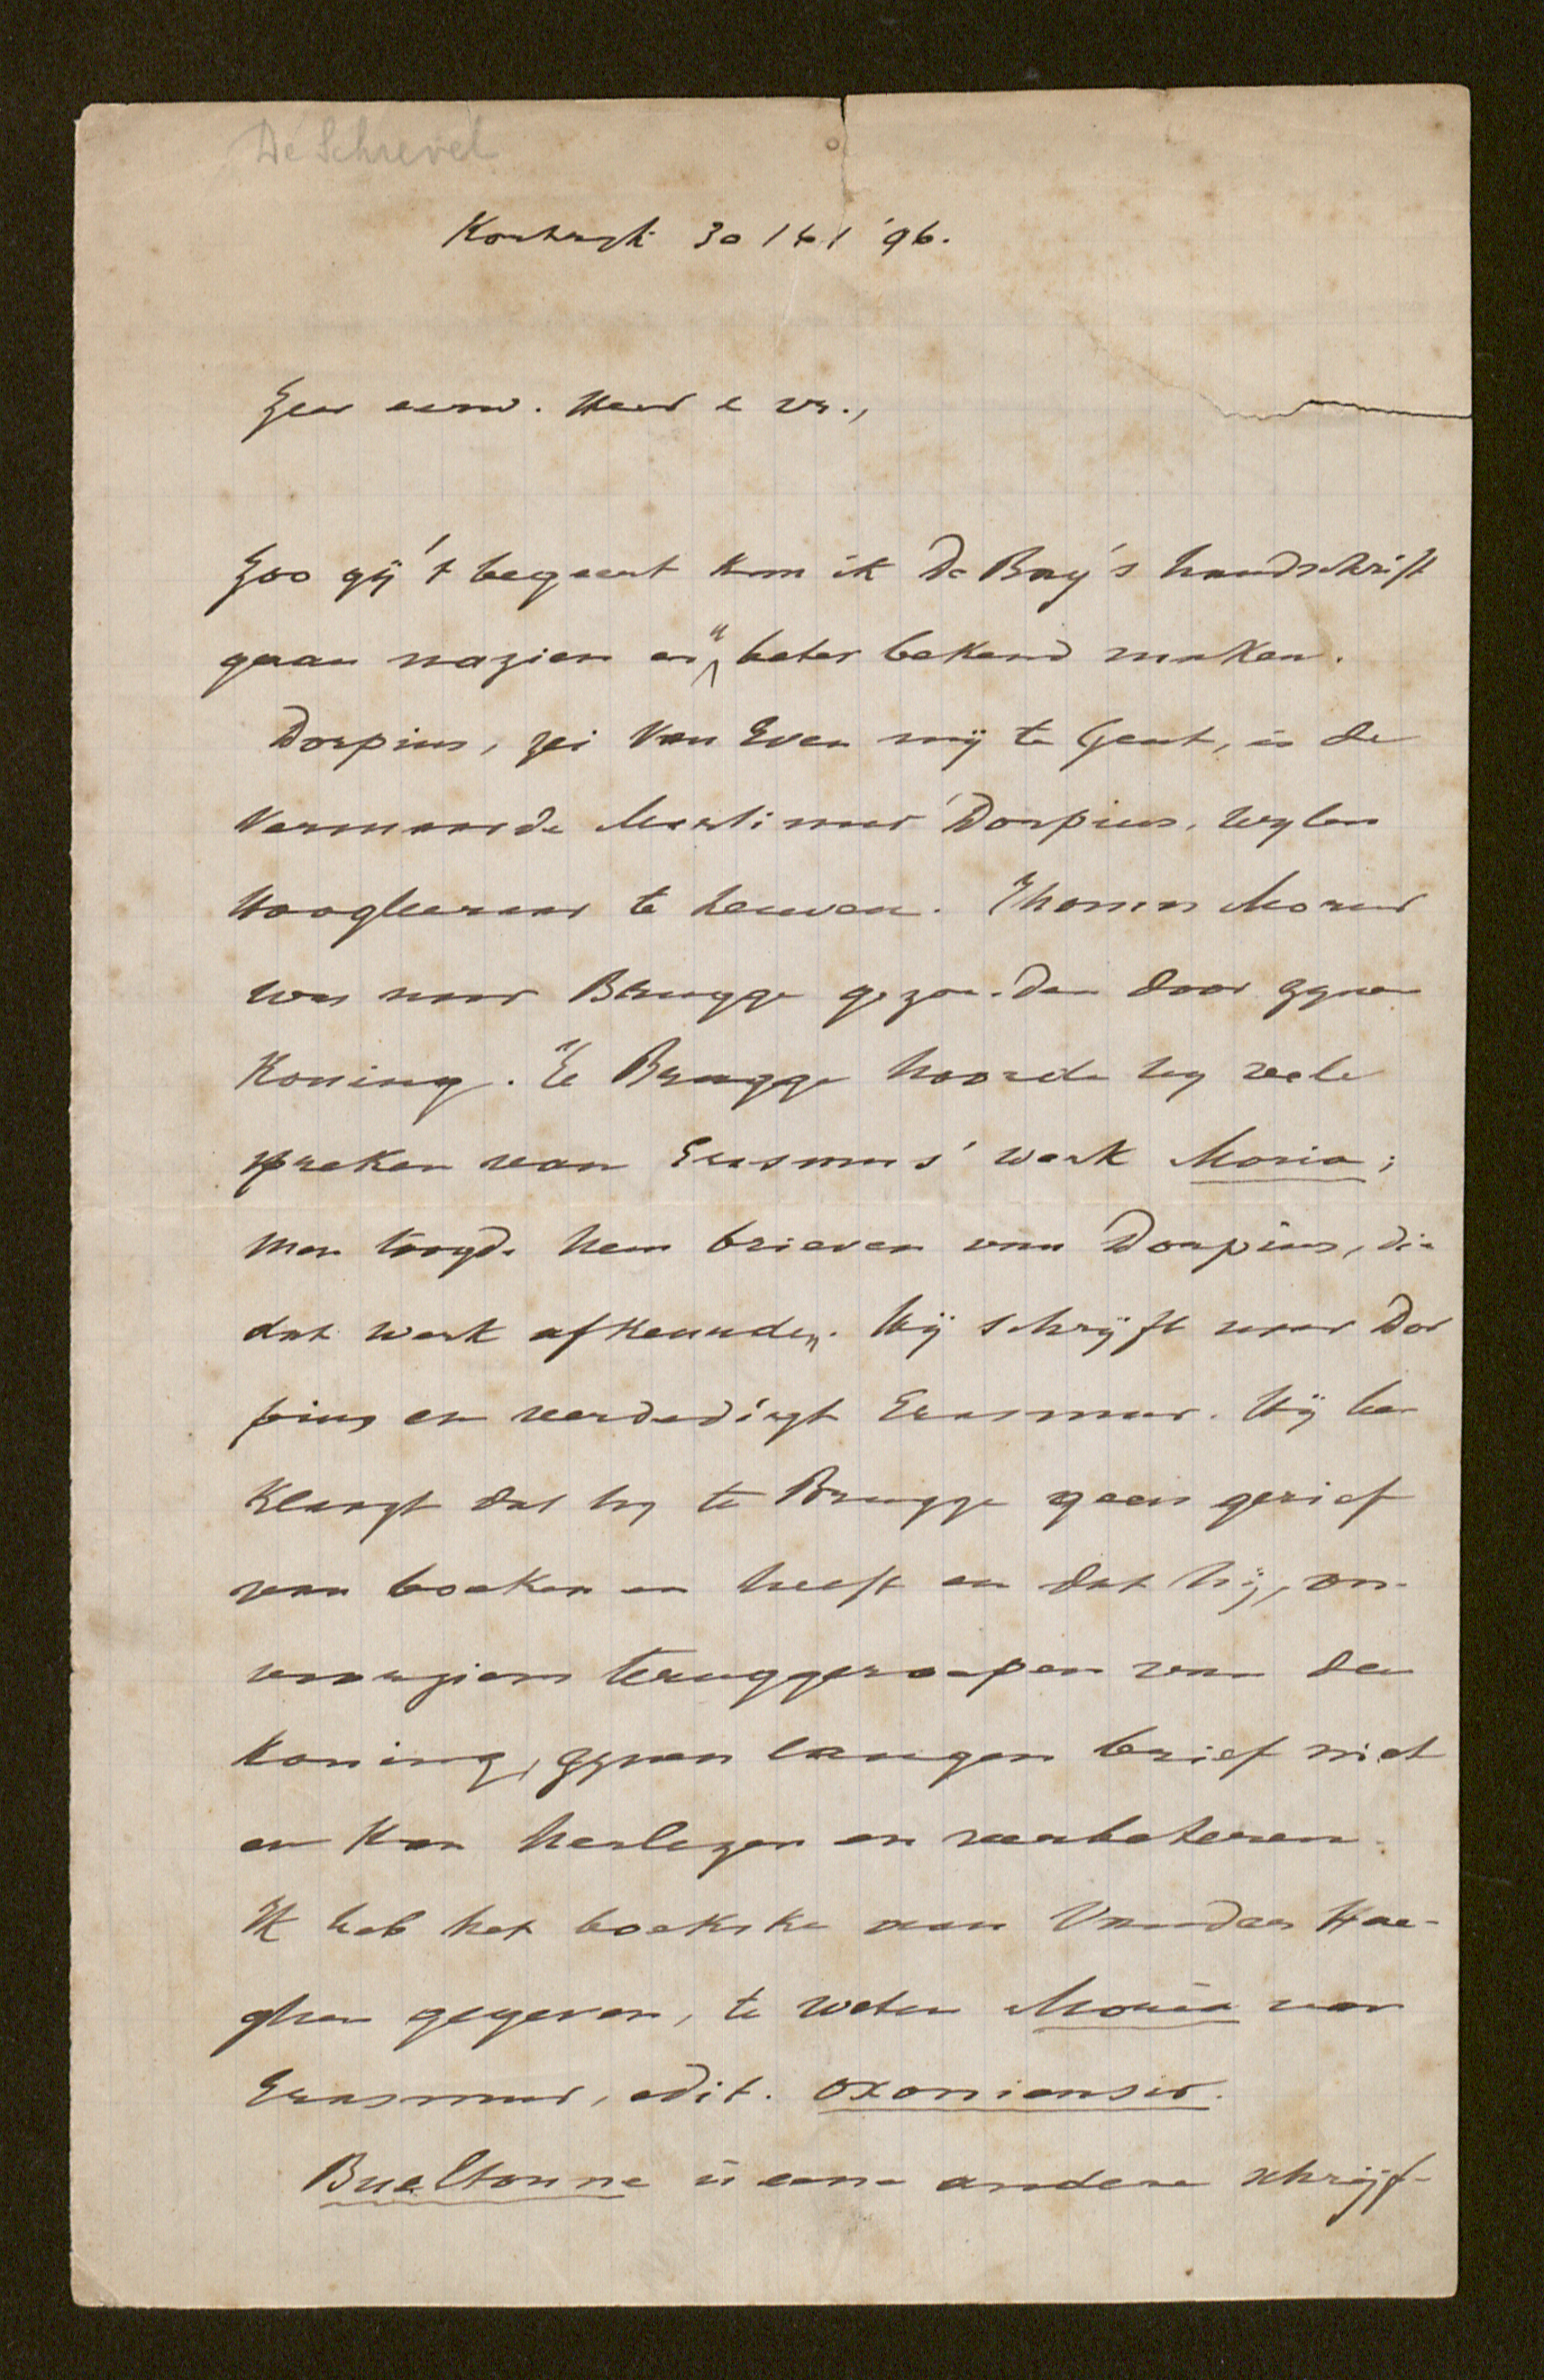 De Schrevel
Kortryk 30/10/ '96.
Zeer eerw. Heer e vr.,
Zoo gij 't begeert kan ik De Bay's handschrift
gaan nazien en u beter bekend maken.
Dorpius, zei Van Even mij te Gent, is de
vermaarde Martinus Dorpius, wylen
hoogleeraar te Leuven. Thomas Morus
was naar Brugge gezonden door zynen
Koning. Te Brugge hoorde hy vele
spreken van Erasmus' werk Moria;
men toogde hem brieven van Dorpius, die
dat werk afkeurden. Hij schrijft naar Dor
pius en verdedigt Erasmus. Hij be
klaagt dat hy te Brugge geen gerief
van boeken en heeft en dat hij, on-
voorziens teruggeroepen van den
Koning, zynen langen brief niet
en kan herlezen en verbeteren.
Ik heb het boekske aan Vander Hae-
ghen gegeven, te weten Moria van
Erasmus, edit. oxoniensis.
Bueltonne is eene andere schrijf-